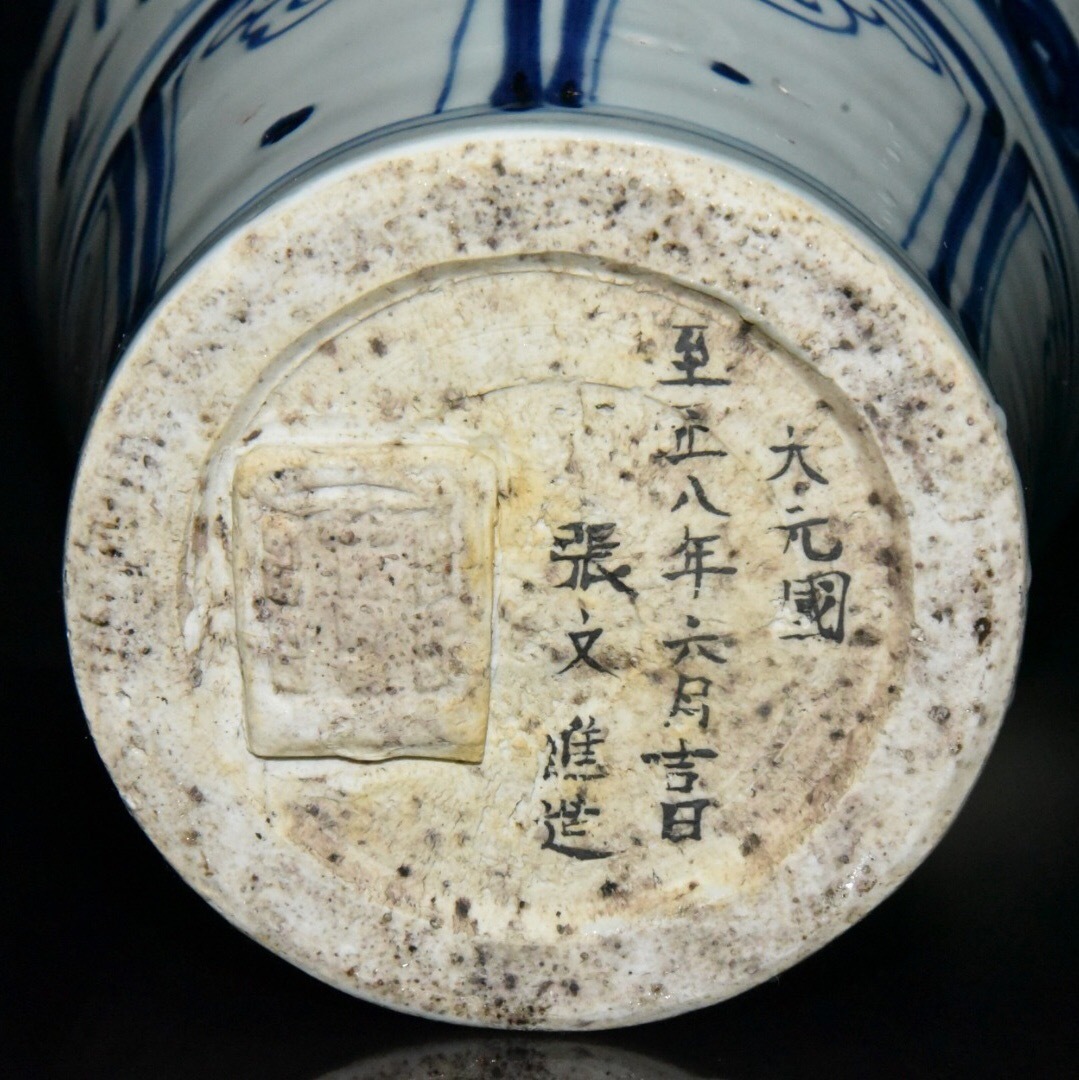 大元國
至正八年六月吉日
張文進造